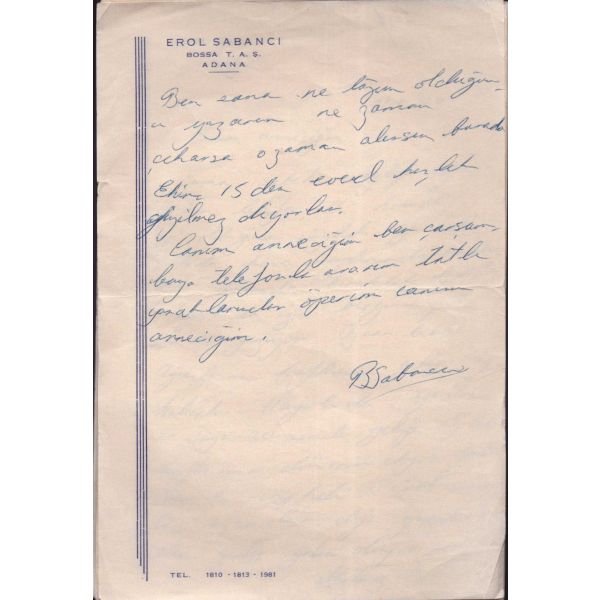 EROL SABANCI
BOSSA T. A. Ş.
ADANA
Ben sana ne lazım olduğun-
u yazarım ne zaman
çıkarsa o zaman alırsın burada
Ekim 15 den evvel
giyilmez diyorlar.
Canım anneciğim ben çarşam-
baya telefonla ararım tatlı
yanaklarından öperim canım
anneciğim.
BSabancı
TEL. 1810 - 1813 - 1981